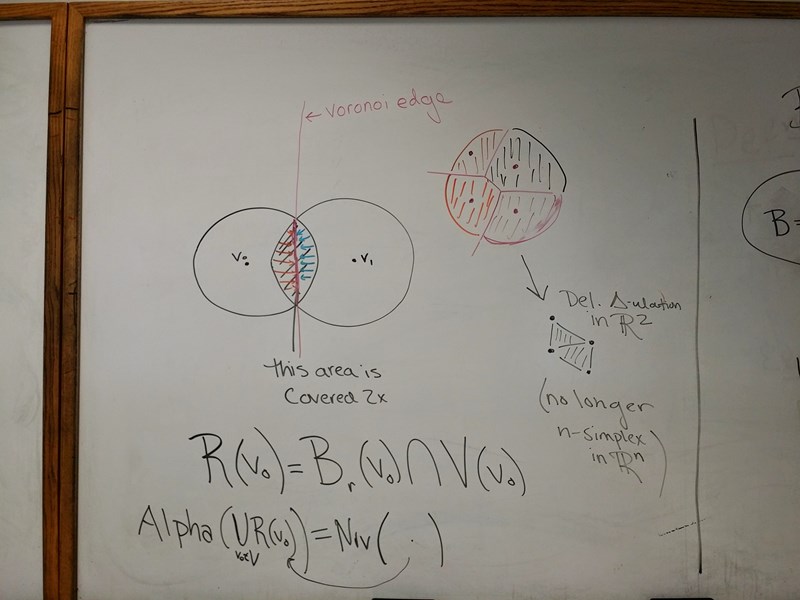 ← Voronoi edge
V₀
V₁
this area is
Covered 2x
Del. Δ-ulation
in ℝ2
(no longer
n-simplex
in ℝⁿ)
R(v₀) = Bᵣ(v₀) ∩ V(v₀)
Alpha(
R(v₀)) =
( . )
B=